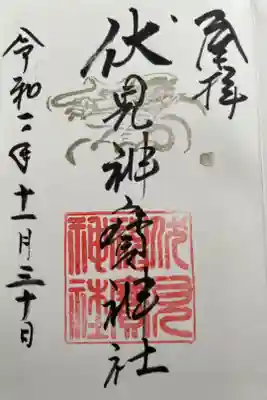 奉拝
伏見神寶神社
令和二年十一月三十日
伏見
神寶
神社